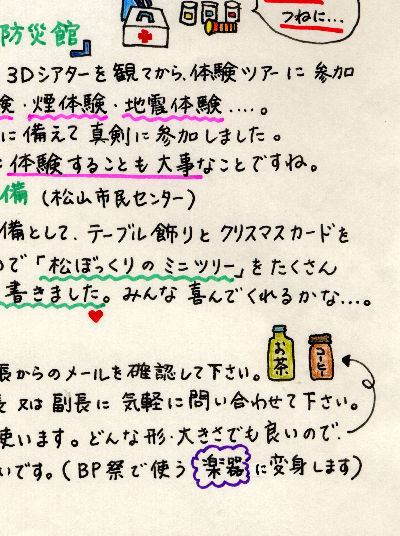 つねに...
防災館
3Dシアターを観てから、体験ツアーに参加
験・煙体験・地震体験....。
に備えて真剣に参加しました。
体験することも大事なことですね。
備 (松山市民センター)
備として、テーブル飾りとクリスマスカードを
ので「松ぼっくりのミニツリー」をたくさん
書きました。みんな喜んでくれるかな...。
お茶
コーヒー
長からのメールを確認して下さい。
長又は副長に気軽に問い合わせて下さい。
使います。どんな形・大きさでも良いので、
いです。(BP祭で使う楽器に変身します)